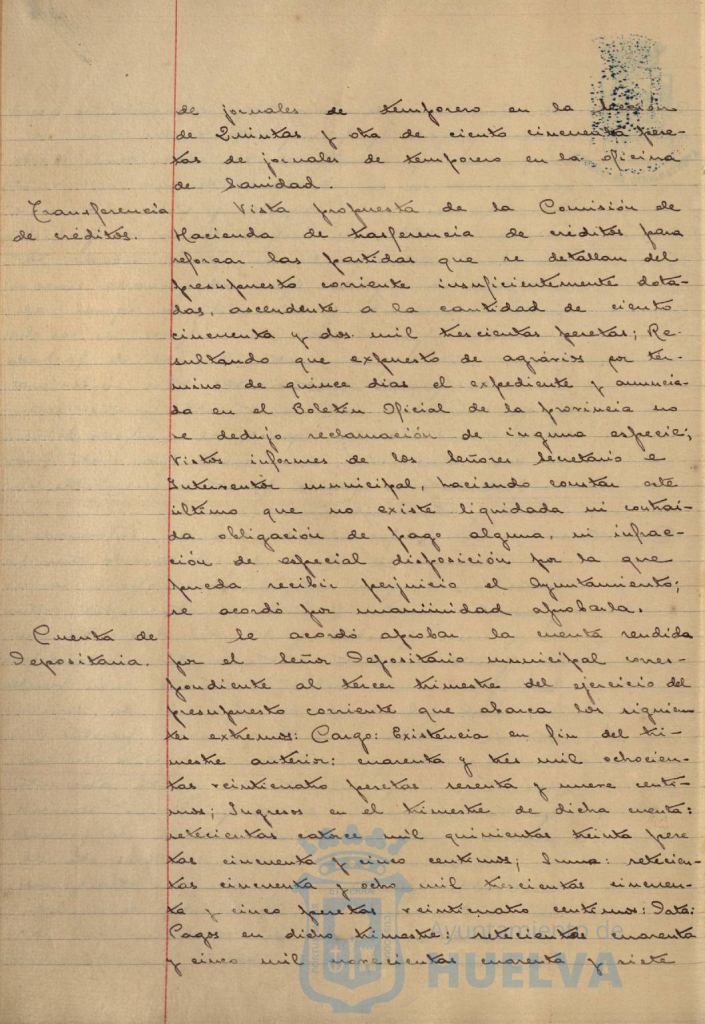 de jornales de temporero en la sección
de Quintas y otra de ciento cincuenta pese-
tas de jornales de temporero en la oficina
de Sanidad.
Transferencia
de créditos.
Vista propuesta de la Comisión de
Hacienda de trasferencia de créditos para
reforzar las partidas que se detallan del
presupuesto corriente insuficientemente dota-
das, ascendente a la cantidad de ciento
cincuenta y dos mil trescientas pesetas; Re-
sultando que expuesto de agrávios por tér-
mino de quince dias el expediente y anuncia-
da en el Boletín Oficial de la provincia no
se dedujo reclamación de inguna especie;
Vistos informes de los Señores Secretario e
Interventor municipal, haciendo constar este
último que no existe liquidada ni contrai-
da obligación de pago alguna, ni infrac-
ción de especial disposición por la que
pueda recibir perjuicio el Ayuntamiento;
se acordó por unanimidad aprobarla.
Cuenta de
Depositaria.
Se acordó aprobar la cuenta rendida
por el Señor Depositario municipal corres-
pondiente al tercer trimestre del ejercicio del
presupuesto corriente que abarca los siguien
tes extremos: Cargo: Existencia en fin del tri-
mestre anterior: cuarenta y tres mil ochocien-
tas veinticuatro pesetas sesenta y nueve centi-
mos; Ingresos en el trimestre de dicha cuenta:
setecientas catorce mil quinientas treinta pese
tas cincuenta y cinco centimos; Suma: setecien-
tas cincuenta y ocho mil trescientas cincuen-
ta y cinco pesetas veinticuatro centimos: Data:
Pagos en dicho trimestre: setecientas cuarenta
y cinco mil novecientas cuarenta y siete
Ayuntamiento de
HUELVA